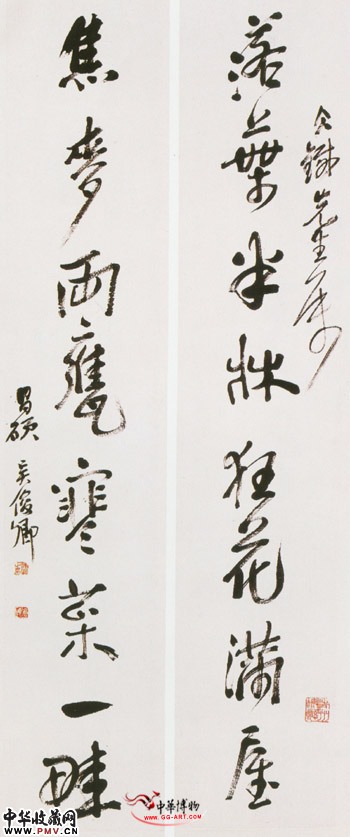 仌鐵先生属
落葉半牀狂花滿屋
焦麥兩甕寒菜一畦
昌碩 吳俊卿
中华收藏网
WWW.PMV.CN
中華博物
www.GG-ART.com